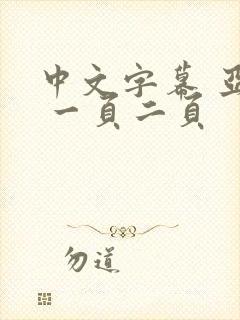 中文字幕 亞
一頁二頁
勿道